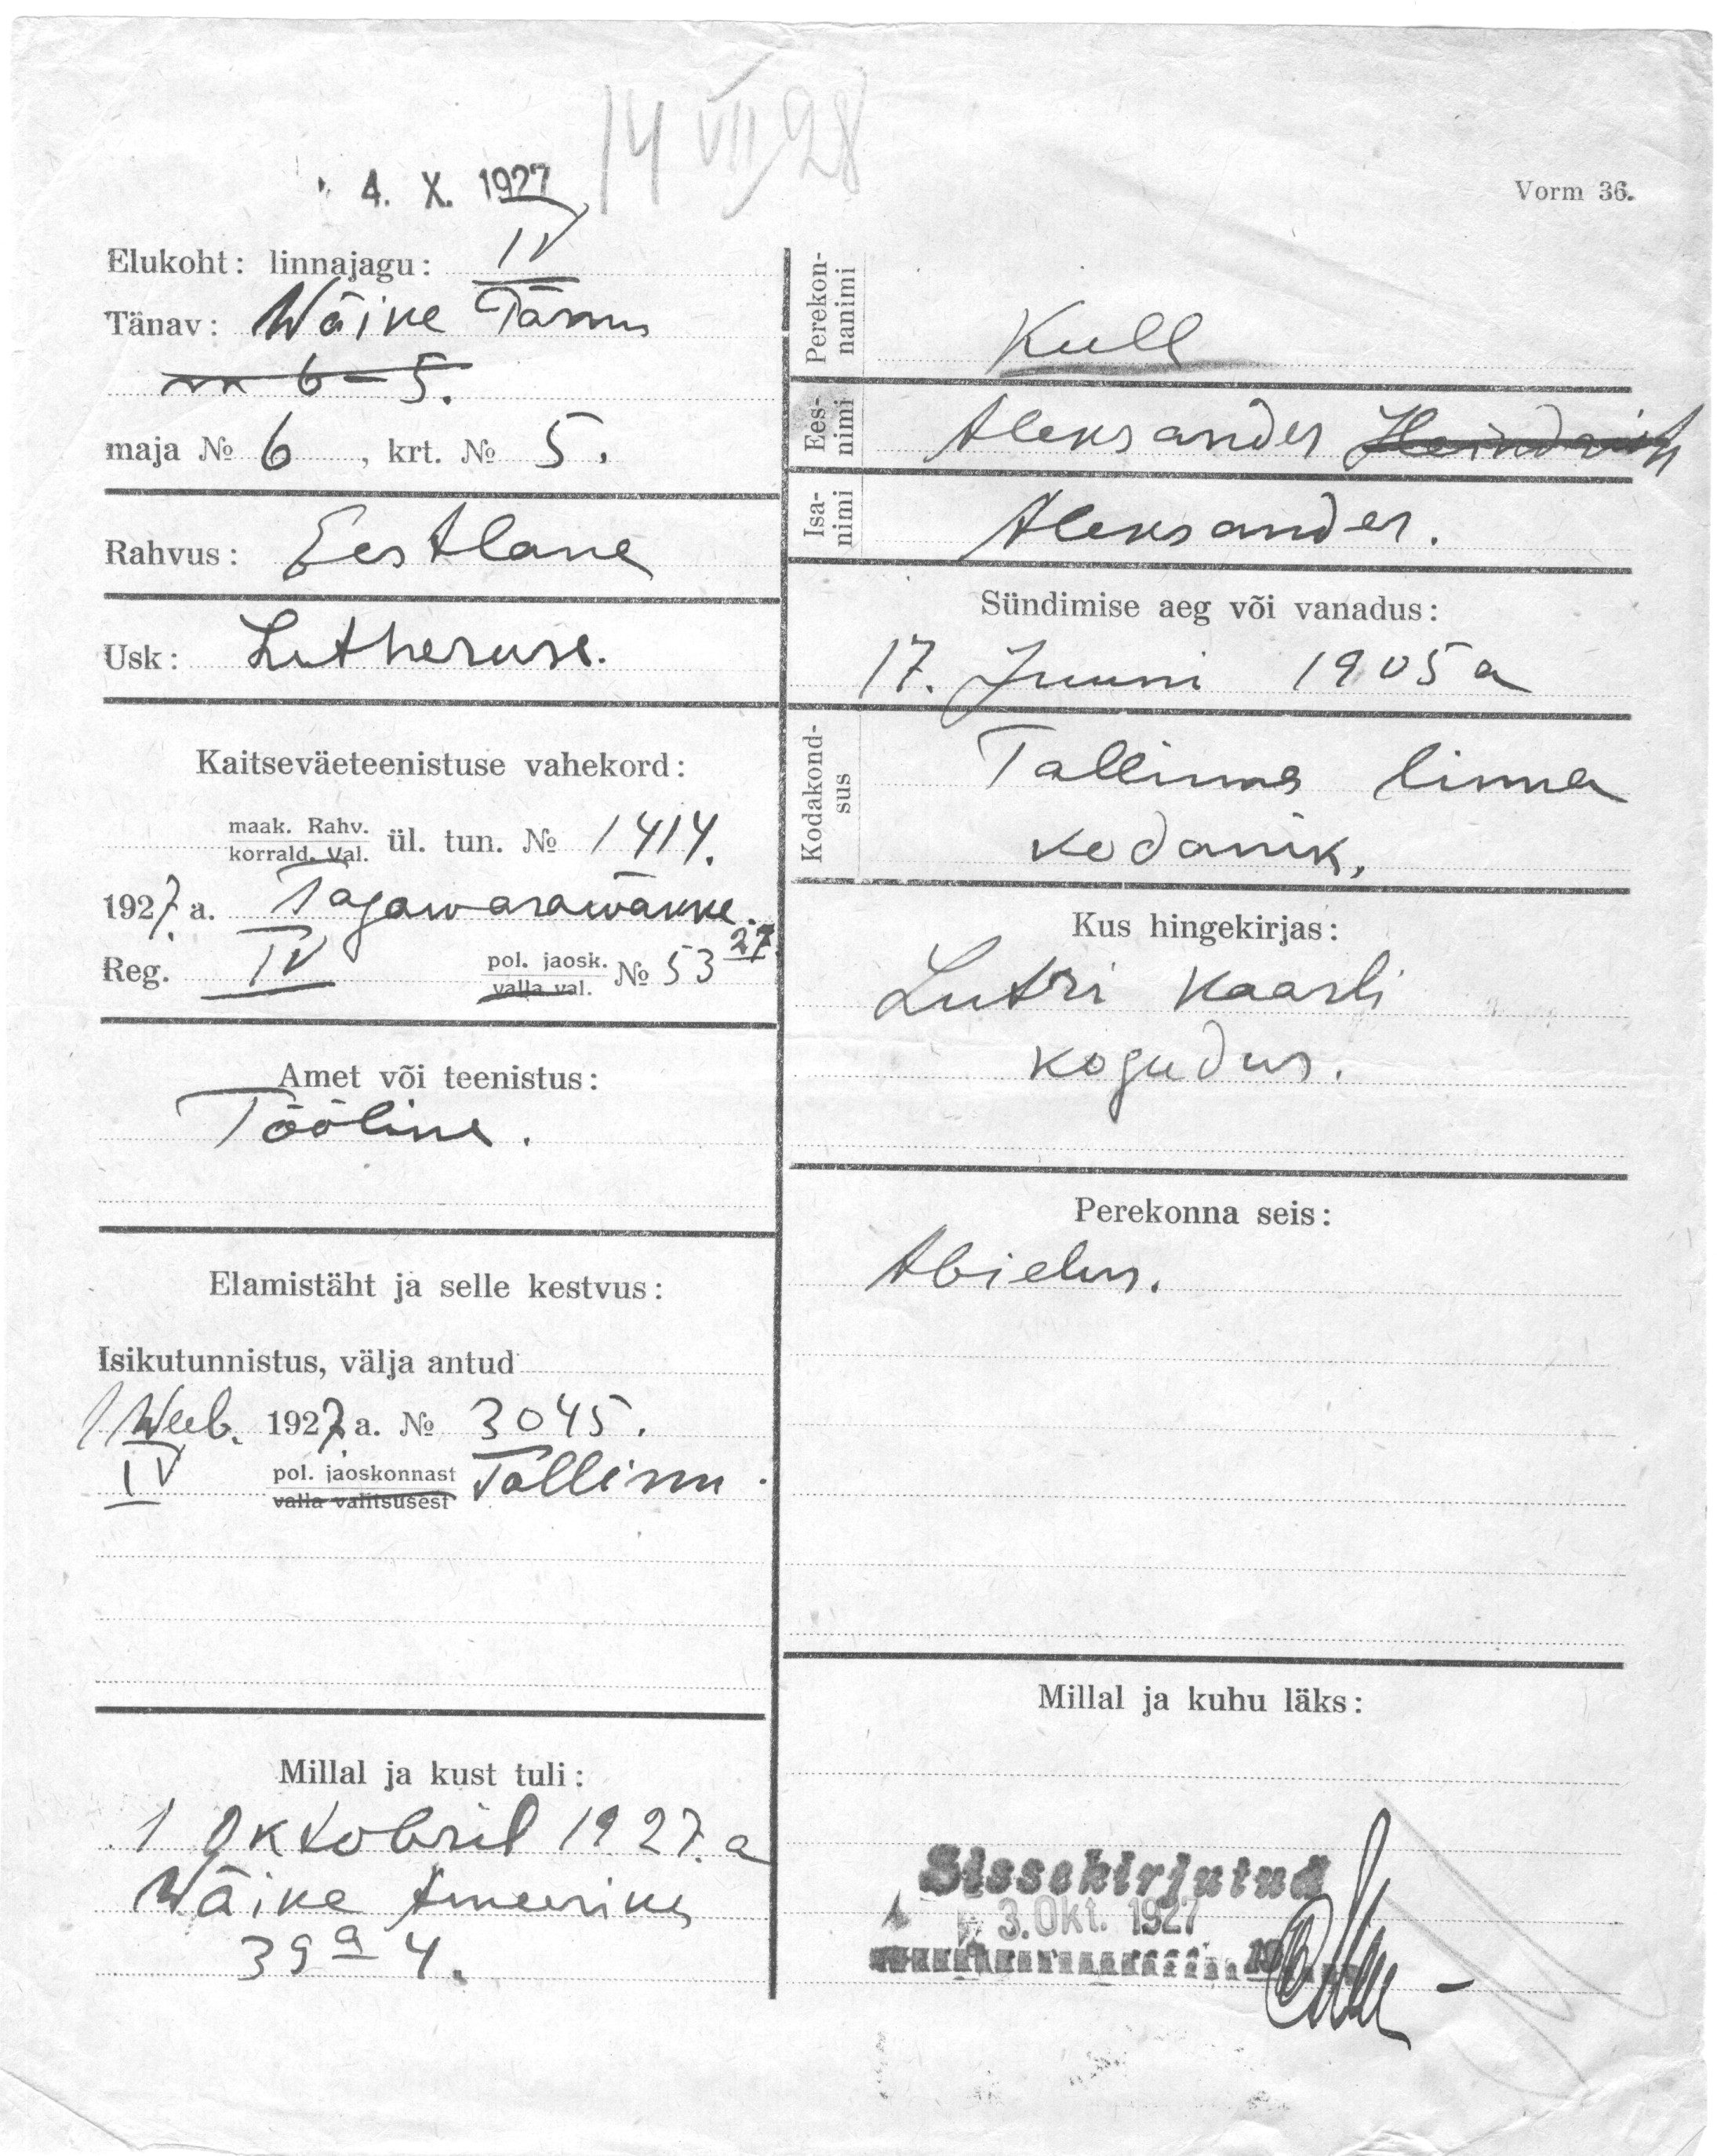 14 VII 28
4. X. 1927
Vorm 36.
Elukoht: linnajagu: IV
Tänav: Wäike Pärnu
m 6-5.
maja № 6, krt. № 5.
Rahvus: Eestlane
Usk: Lutheruse.
Kaitseväeteenistuse vahekord:
maak. Rahv.
korrald. Val. ül. tun. № 1414.
1927. a. Tagawarawäkke.
Reg. IV pol. jaosk. № 53 27
valla val.
Amet või teenistus:
Tööline.
Elamistäht ja selle kestvus:
Isikutunnistus, välja antud
1 Weeb. 1927. a. № 3045.
IV pol. jaoskonnast Tallinn.
valla valitsusest
Millal ja kust tuli:
1 Oktobril 1927. a
Wäike Ameerika
39 a 4.
Perekonnanimi
Kull
Eesnimi
Aleksander Heindrich
Isanimi
Aleksander.
Sündimise aeg või vanadus:
17. Juuni 1905 a
Kodakondsus
Tallinna linna
kodanik.
Kus hingekirjas:
Lutri Kaarli
kogudus.
Perekonna seis:
Abielus.
Millal ja kuhu läks:
Sissekirjutud
3. Okt. 1927